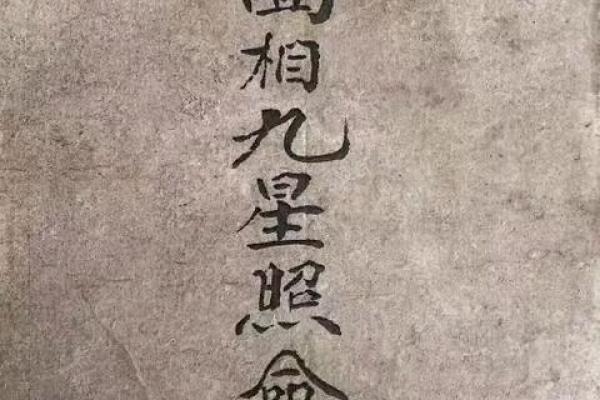 面相九星照命